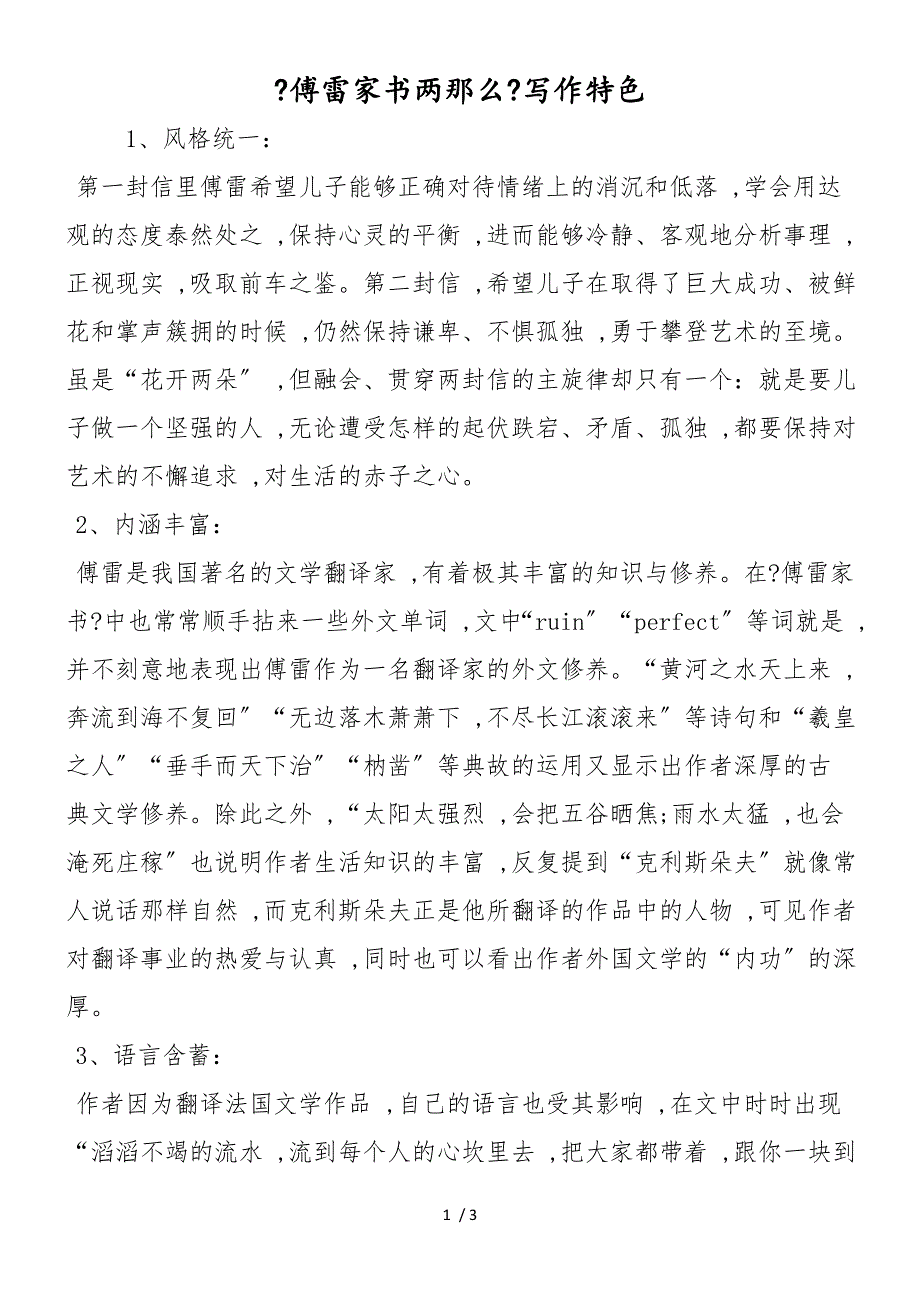 ?傅雷家书两那么?写作特色
1、风格统一：
第一封信里傅雷希望儿子能够正确对待情绪上的消沉和低落 ,学会用达
观的态度泰然处之 ,保持心灵的平衡 ,进而能够冷静、客观地分析事理 ,
正视现实 ,吸取前车之鉴。第二封信 ,希望儿子在取得了巨大成功、被鲜
花和掌声簇拥的时候 ,仍然保持谦卑、不惧孤独 ,勇于攀登艺术的至境。
虽是“花开两朵〞 ,但融会、贯穿两封信的主旋律却只有一个：就是要儿
子做一个坚强的人 ,无论遭受怎样的起伏跌宕、矛盾、孤独 ,都要保持对
艺术的不懈追求 ,对生活的赤子之心。
2、内涵丰富：
傅雷是我国著名的文学翻译家 ,有着极其丰富的知识与修养。在?傅雷家
书?中也常常顺手拈来一些外文单词 ,文中“ruin〞“perfect〞等词就是 ,
并不刻意地表现出傅雷作为一名翻译家的外文修养。“黄河之水天上来 ,
奔流到海不复回〞“无边落木萧萧下 ,不尽长江滚滚来〞等诗句和“羲皇
之人〞“垂手而天下治〞“枘凿〞等典故的运用又显示出作者深厚的古
典文学修养。除此之外 ,“太阳太强烈 ,会把五谷晒焦;雨水太猛 ,也会
淹死庄稼〞也说明作者生活知识的丰富 ,反复提到“克利斯朵夫〞就像常
人说话那样自然 ,而克利斯朵夫正是他所翻译的作品中的人物 ,可见作者
对翻译事业的热爱与认真 ,同时也可以看出作者外国文学的“内功〞的深
厚。
3、语言含蓄：
作者因为翻译法国文学作品 ,自己的语言也受其影响 ,在文中时时出现
“滔滔不竭的流水 ,流到每个人的心坎里去 ,把大家都带着 ,跟你一块到
1 / 3